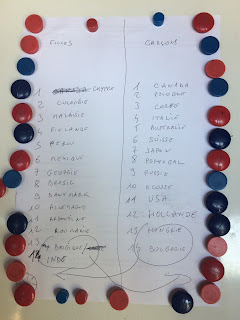 FILLES
1 CHYPRE
2 COLOMBIE
3 MALAISIE
4 FINLANDE
5 PEROU
6 MEXIQUE
7 GEORGIE
8 BRESIL
9 DANEMARK
10 ALLEMAGNE
11 ARGENTINE
12 ROUMANIE
13 BELGIQUE
14 INDE
GARÇONS
1 CANADA
2 POLOGNE
3 COREE
4 ITALIE
5 AUSTRALIE
6 SUISSE
7 JAPON
8 PORTUGAL
9 RUSSIE
10 ECOSSE
11 USA
12 HOLLANDE
13 HONGRIE
14 BULGARIE